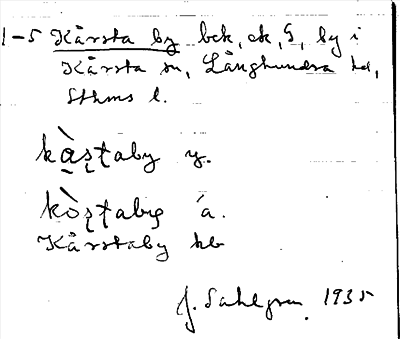 1-5 Kårsta by bck, ck, S, by i
Kårsta sn, Långhundra hd,
Sthms l.
kà̱ṣṭaby y.
kòṣṭabẏ ä.
Kårstaby hb
J. Sahlgren. 1935